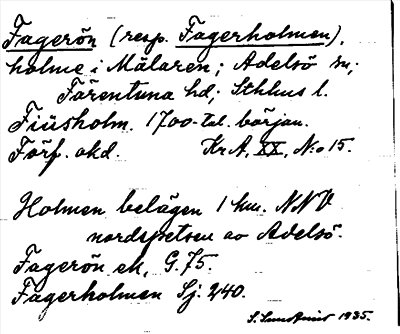 Fagerön (resp. Fagerholmen),
holme i Mälaren; Adelsö sn;
Färentuna hd; Sthlms l.
Fiüsholm. 1700-tal. början.
Förf. okd. Kr A, XX, N:o 15.
Holmen belägen 1 km. NNV
nordspetsen av Adelsö.
Fagerön ek, G. 75.
Fagerholmen Sj. 240.
S. Sundqvist 1935.